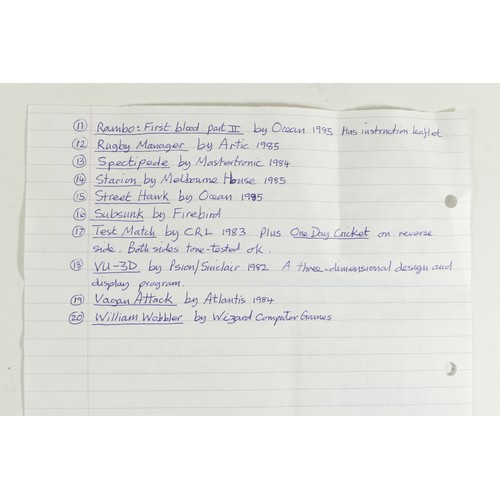 (11) Rambo: First blood part II by Ocean 1985 Has instruction leaflet.
(12) Rugby Manager by Artic 1985
(13) Spectipede by Mastertronic 1984
(14) Starion by Melbourne House 1985
(15) Street Hawk by Ocean 1985
(16) Subsunk by Firebird
(17) Test Match by CRL 1983 Plus One Day Cricket on reverse
side. Both sides tone-tested ok.
(18) VU-3D by Psion/Sinclair 1982 A three-dimensional design and
display program.
(19) Vagan Attack by Atlantis 1984
(20) William Wobbler by Wizard Computer Games